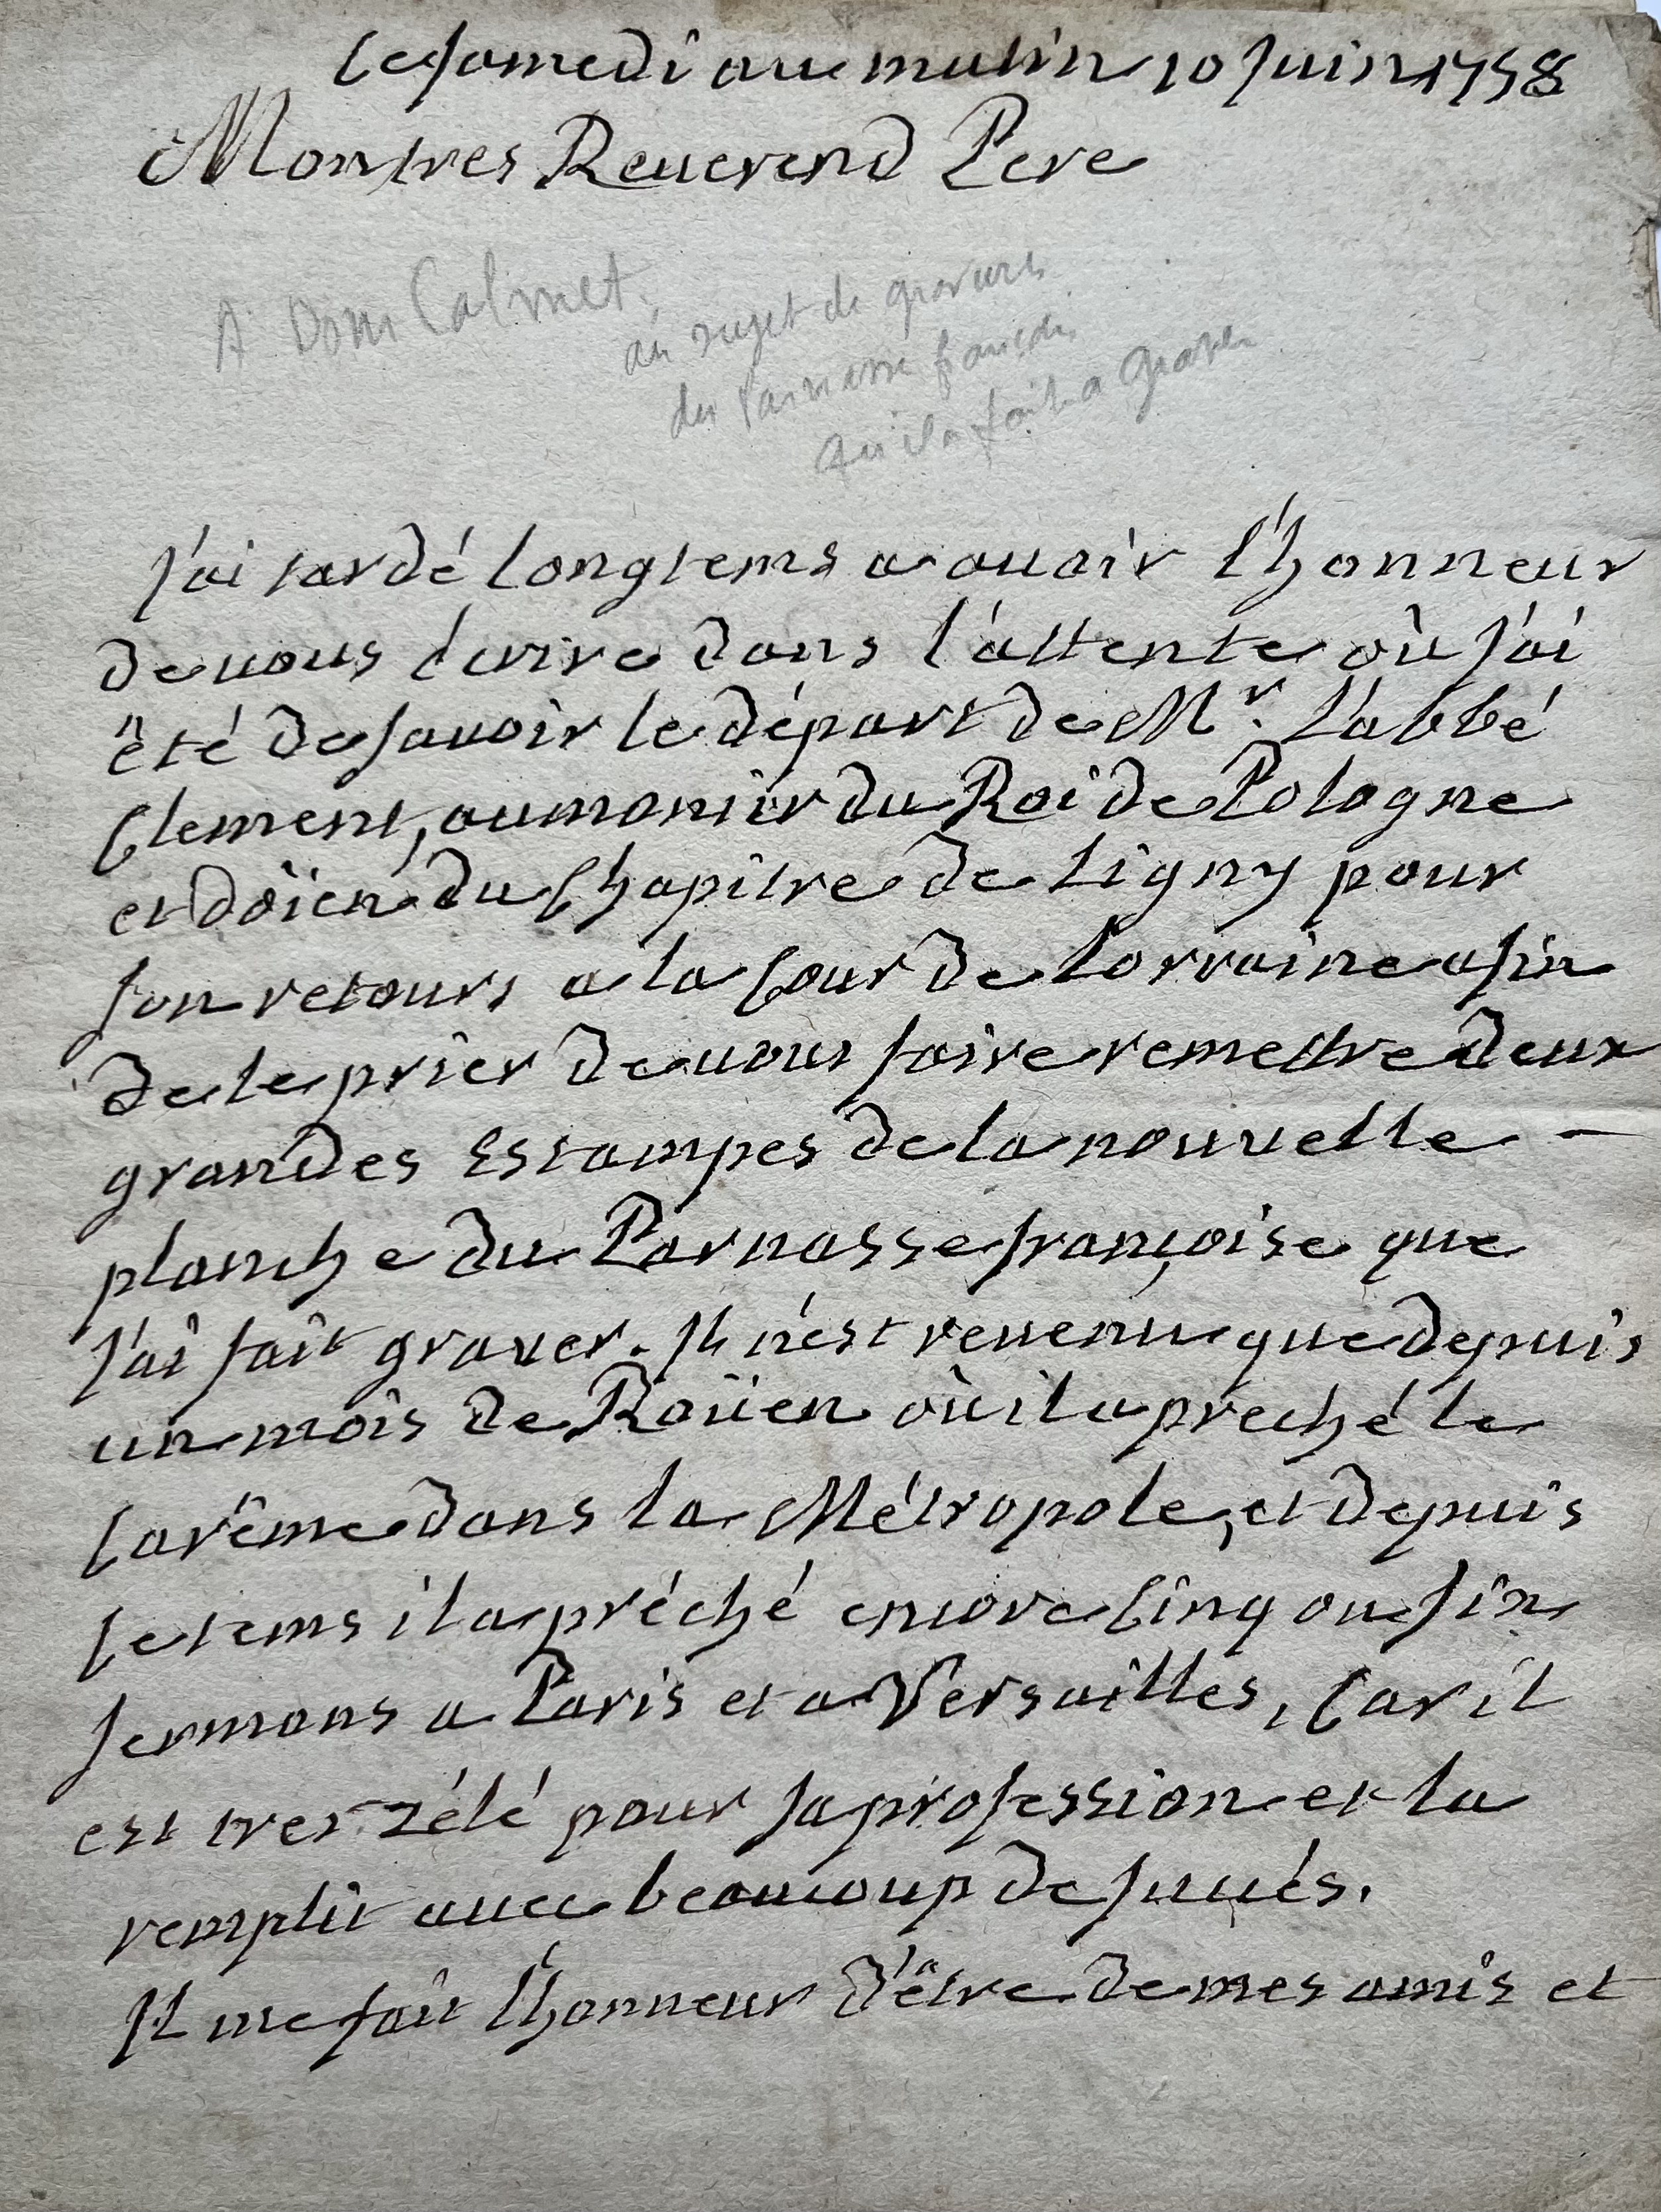 Ce samedi au matin 10 Juin 1758
Mon tres Reuerend Pere
A Dom Calmet.
au sujet de gravures
du Parnasse françois
qu'il a fait a graver
J'ai tardé longtems a auoir l'honneur
de uous écrire dans l'attente où j'ai
êté de sauoir le départ de Mr. L'abbé
Clement, aumonier du Roi de Pologne
et Doïen du Chapitre de Ligny pour
son retours a la Cour de Lorraine afin
de le prier de uous faire remettre deux
grandes Estampes de la nouuelle —
planche du Parnasse françoise que
j'ai fait grauer. Il n'est reuenu que depuis
un mois de Roüen où il a preché le
Carême dans la Métropole, et depuis
ce tems il a préché encore Cinq ou six
sermons a Paris et a Versailles, Car il
est tres zélé pour sa profession et la
remplit auec beaucoup de succés.
Il me fait l'honneur d'être de mes amis et